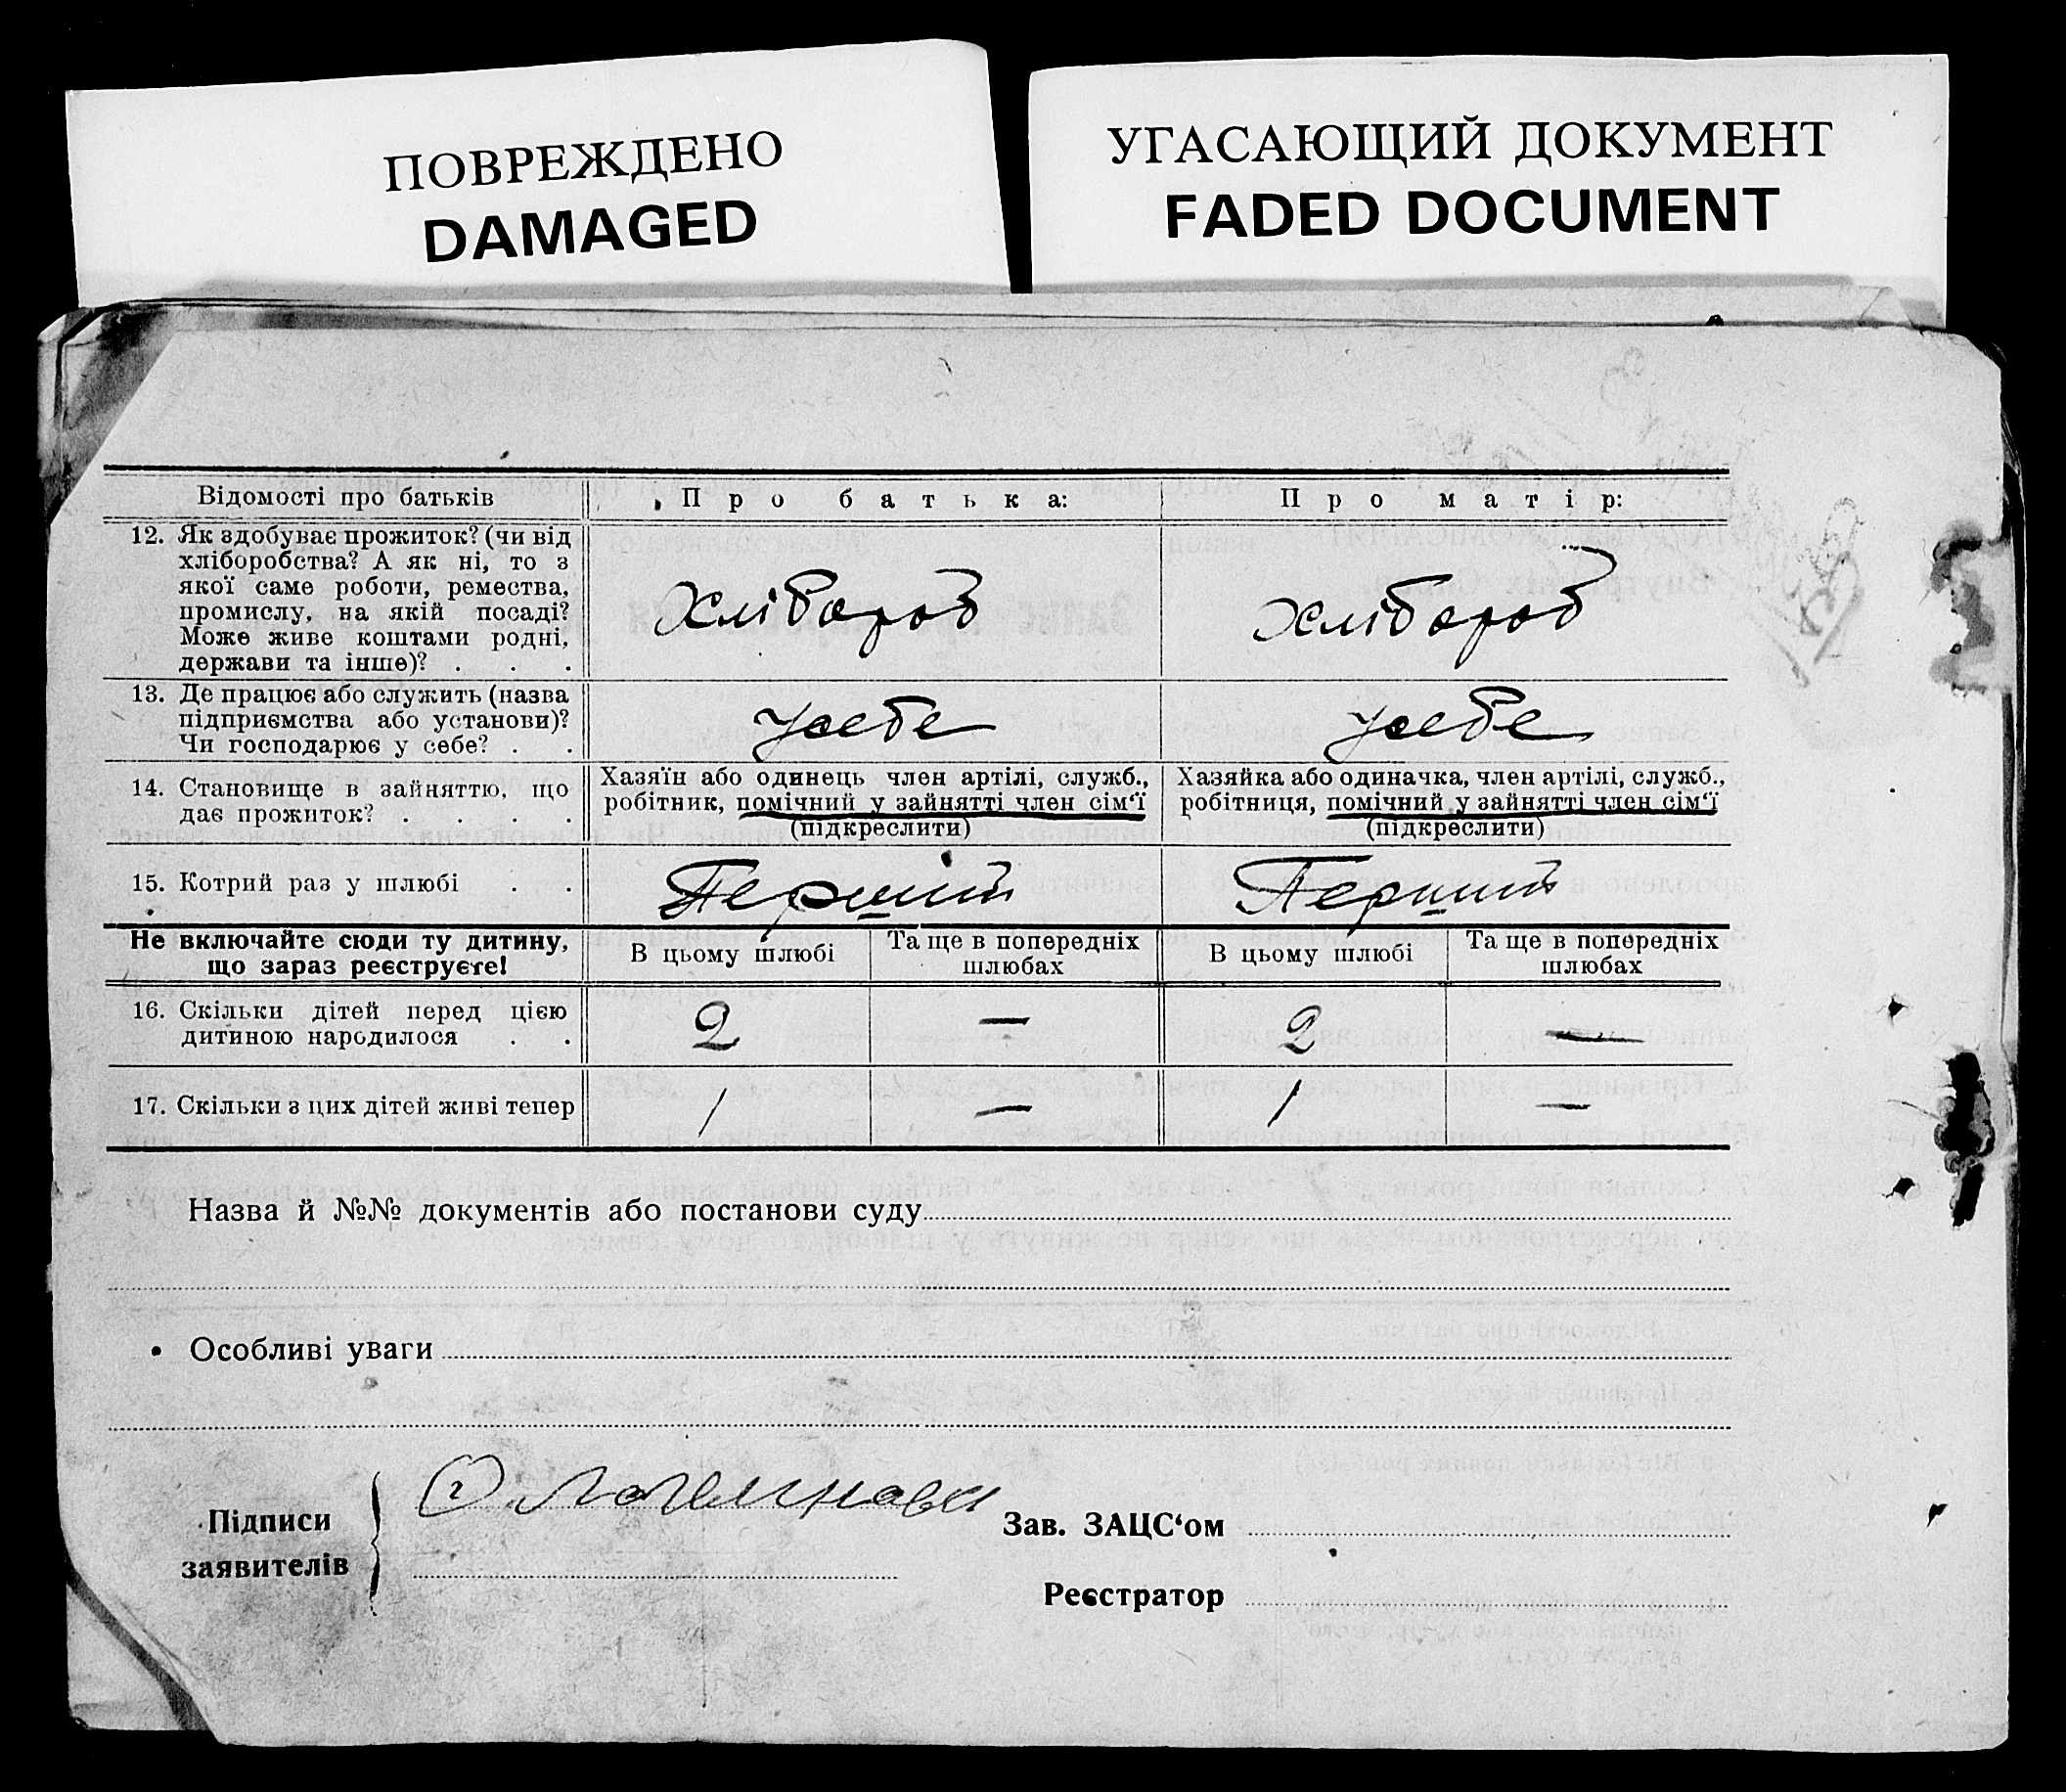 ПОВРЕЖДЕНО
DAMAGED
УГАСАЮЩИЙ ДОКУМЕНТ
FADED DOCUMENT
Відомості про батьків
Про батька:
Про матір:
12. Як здобуває прожиток? (чи від
хліборобства? А як ні, то з
якої саме роботи, ремества,
промислу, на якій посаді?
Може живе коштами родні,
держави та інше)? . . .
Хлібороб
Хлібороб
13. Де працює або служить (назва
підприємства або установи)?
Чи господарює у себе? . .
у себе
у себе
14. Становище в зайняттю, що
дає прожиток? . . . .
Хазяїн або одинець член артілі, служб.,
робітник, помічний у зайнятті член сім‘ї
(підкреслити)
Хазяйка або одиначка, член артілі, служб.,
робітниця, помічний у зайнятті член сім‘ї
(підкреслити)
15. Котрий раз у шлюбі . .
Перший
Перший
Не включайте сюди ту дитину,
що зараз реєструєте!
В цьому шлюбі
Та ще в попередніх
шлюбах
В цьому шлюбі
Та ще в попередніх
шлюбах
16. Скільки дітей перед цією
дитиною народилося . .
2
—
2
—
17. Скільки з цих дітей живі тепер
1
—
1
—
Назва й №№ документів або постанови суду
Особливі уваги
Підписи
заявителів
Зав. ЗАЦС‘ом
Реєстратор